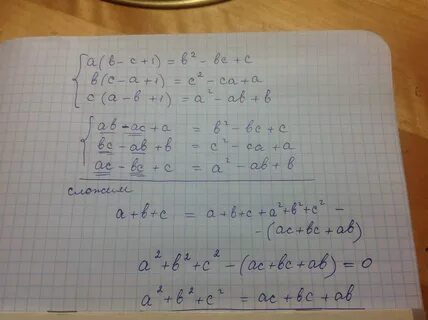 a(b-c+1) = b² - bc + c
b(c-a+1) = c² - ca + a
c(a-b+1) = a² - ab + b
ab - ac + a = b² - bc + c
bc - ab + b = c² - ca + a
ac - bc + c = a² - ab + b
сложим
a+b+c = a+b+c + a²+b²+c² -
- (ac+bc+ab)
a²+b²+c² - (ac+bc+ab) = 0
a²+b²+c² = ac+bc+ab